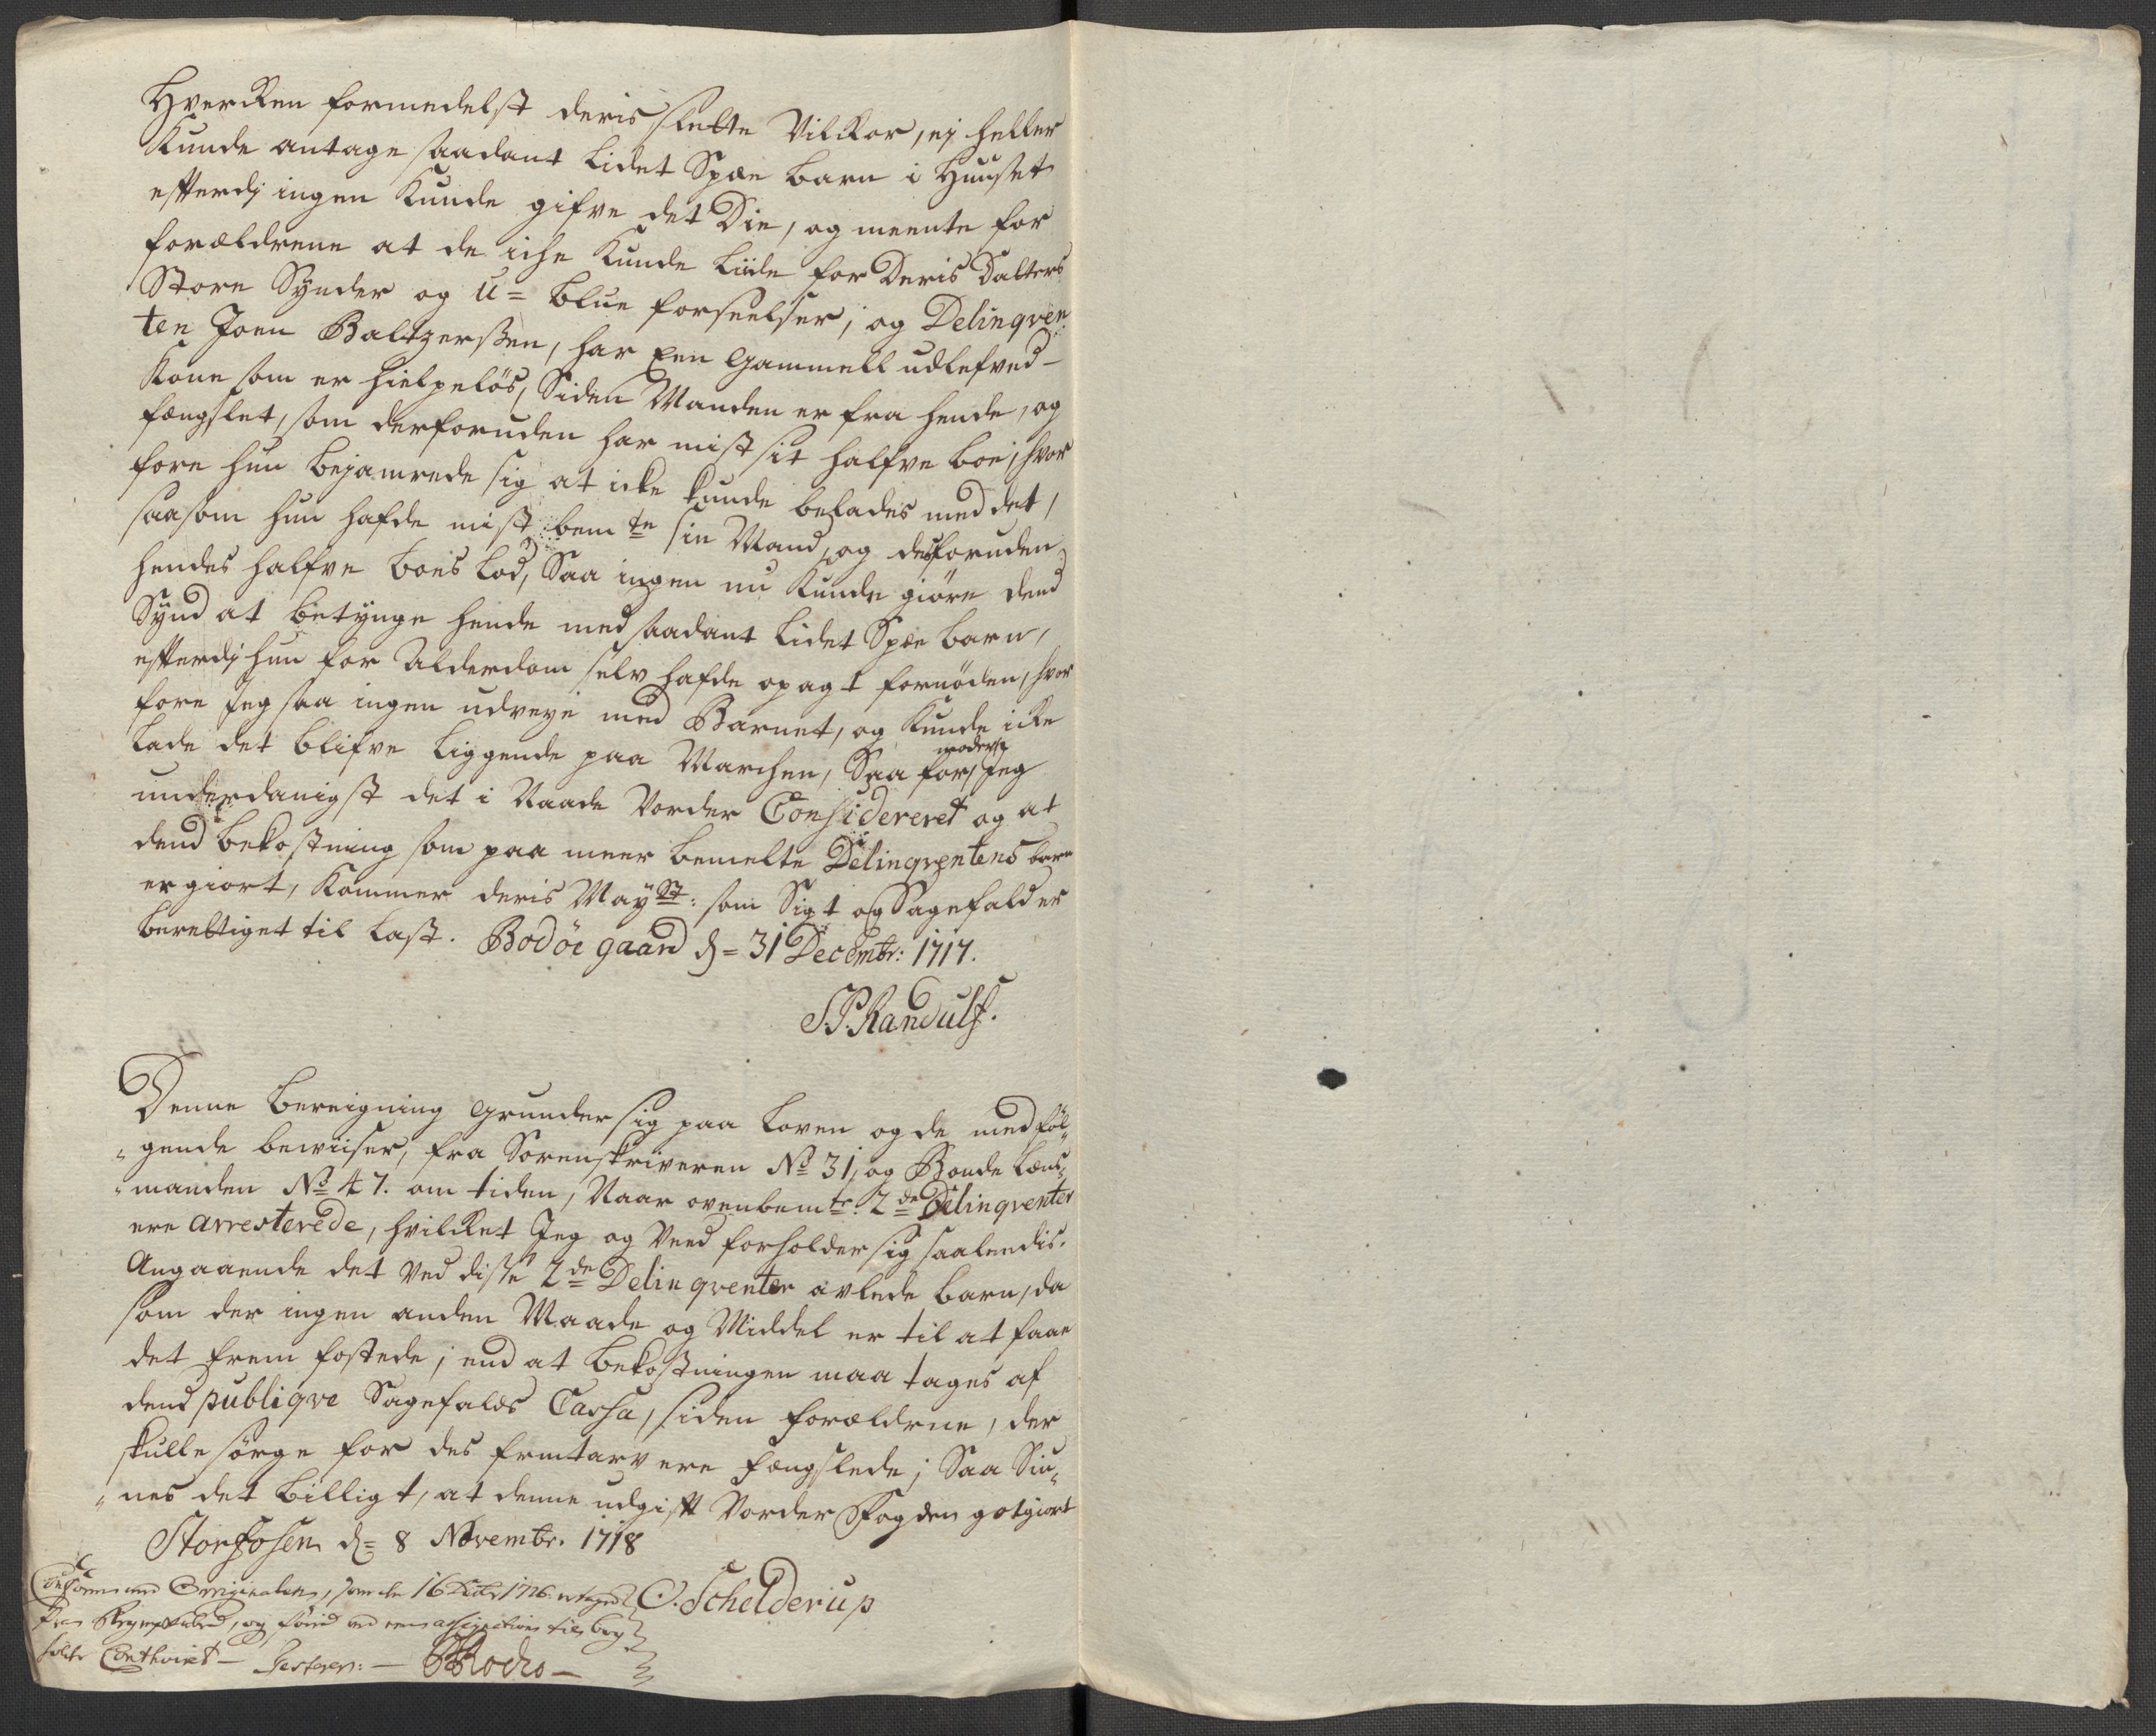 Hvercken formedelst deris slette Vilckor, ej heller
Kunde antage saadant lidet Spæe barn i Huuset
efterdj ingen Kunde gifve det Die, og meente for
forældrene at de iche Kunde liide for Deris Datters
Store Synder og U= blue forseelser; og Delinqven
ten Joen Baltzerssen, har Een Gammell udlefved
Kone som er hielpeløs, Siden Manden er fra hende, og
fængslet, som derforuden har mist sit halfve boe; hvor
fore hun bejamrede sig at icke kunde belades med det,
saasom hun hafde mist bemte sin Mand, og desforuden
hendes halfve boes lod, Saa ingen nu Kunde giøre dend
Synd at betynge hende med saadant lidet Spæe barn,
efterdj hun for Alderdom selv hafde opagt fornøden, hvor
fore Jeg saa ingen udveye med Barnet, og Kunde icke
lade det blifve liggende paa Marchen, Saa formoder Jeg
underdanigst det i Naade Vorder Considereret og at
dend bekostning som paa meer bemelte Delinqventens barn
er giort, Kommer deris Mayst: som Sigt og Sagefald er
berettiget til Last. Bodøe gaard d= 31 Decembr: 1717.
S.P. Randulf.
Denne beregning Grunder sig paa Loven og de medføl„
„gende bewiiser, fra Sorenskriveren No 31, og Bonde Læns„
„manden No 47. om tiden, Naar ovenbemte 2de Delinqventer
ere arresterede, hvilcket Jeg og Veed forholder sig saaledis.
Angaaende det ved disse 2de Delinqventer avlede barn, da
som der ingen anden Maade og Middel er til at faae
det frem fostede; end at bekostningen maa tages af
dend publiqve Sagefalds Cassa, siden forældrene, der
skulle sørge for des fremtarv ere fængslede; Saa Siu„
„nes det billigt, at denne udgift Vorder Fogden gotgiort
Storfosen d= 8 Novembr. 1718
O. Schelderup
Conform med Originalen, som den 16 1726
og ved een assignation til